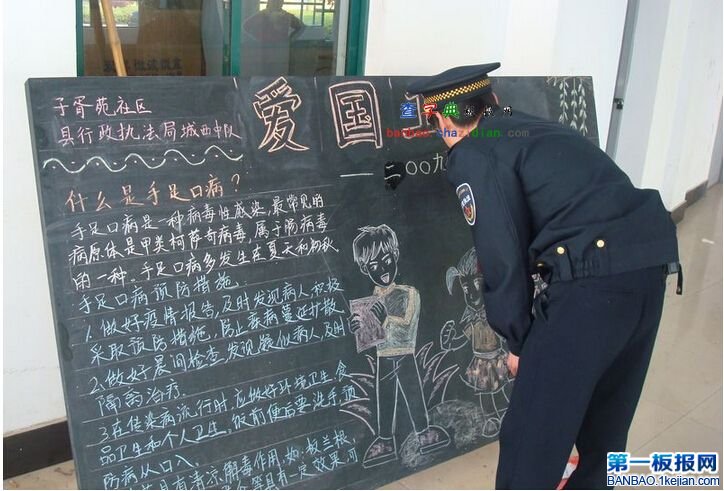 子胥苑社区
县行政执法局城西中队
爱国
一二〇〇九
什么是手足口病？
手足口病是一种病毒性感染，最常见的
病原体是甲类柯萨奇病毒，属于肠病毒
的一种。手足口病多发生在夏天和初秋
手足口病预防措施。
1.做好疫情报告，及时发现病人，积极
采取预防措施，防止疾病蔓延扩散
2.做好晨间检查，发现疑似病人，及时
隔离治疗。
3.在传染病流行时，应做好环境卫生、食
品卫生和个人卫生。饭前便后要洗手，预
防病从口入。
具有清凉解毒作用，如：板兰根，
等具有一定效果，可
查字典板报网
banbao.chazidian.com
第一板报网
BANBAO.1kejian.com